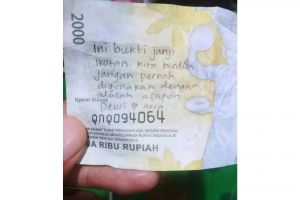 2000
Ini bukti janji
ikatan kita berdua
jangan pernah
digunakan dengan
alasan apapun
Dewi ♡ Aria
QNQ094064
UA RIBU RUPIAH